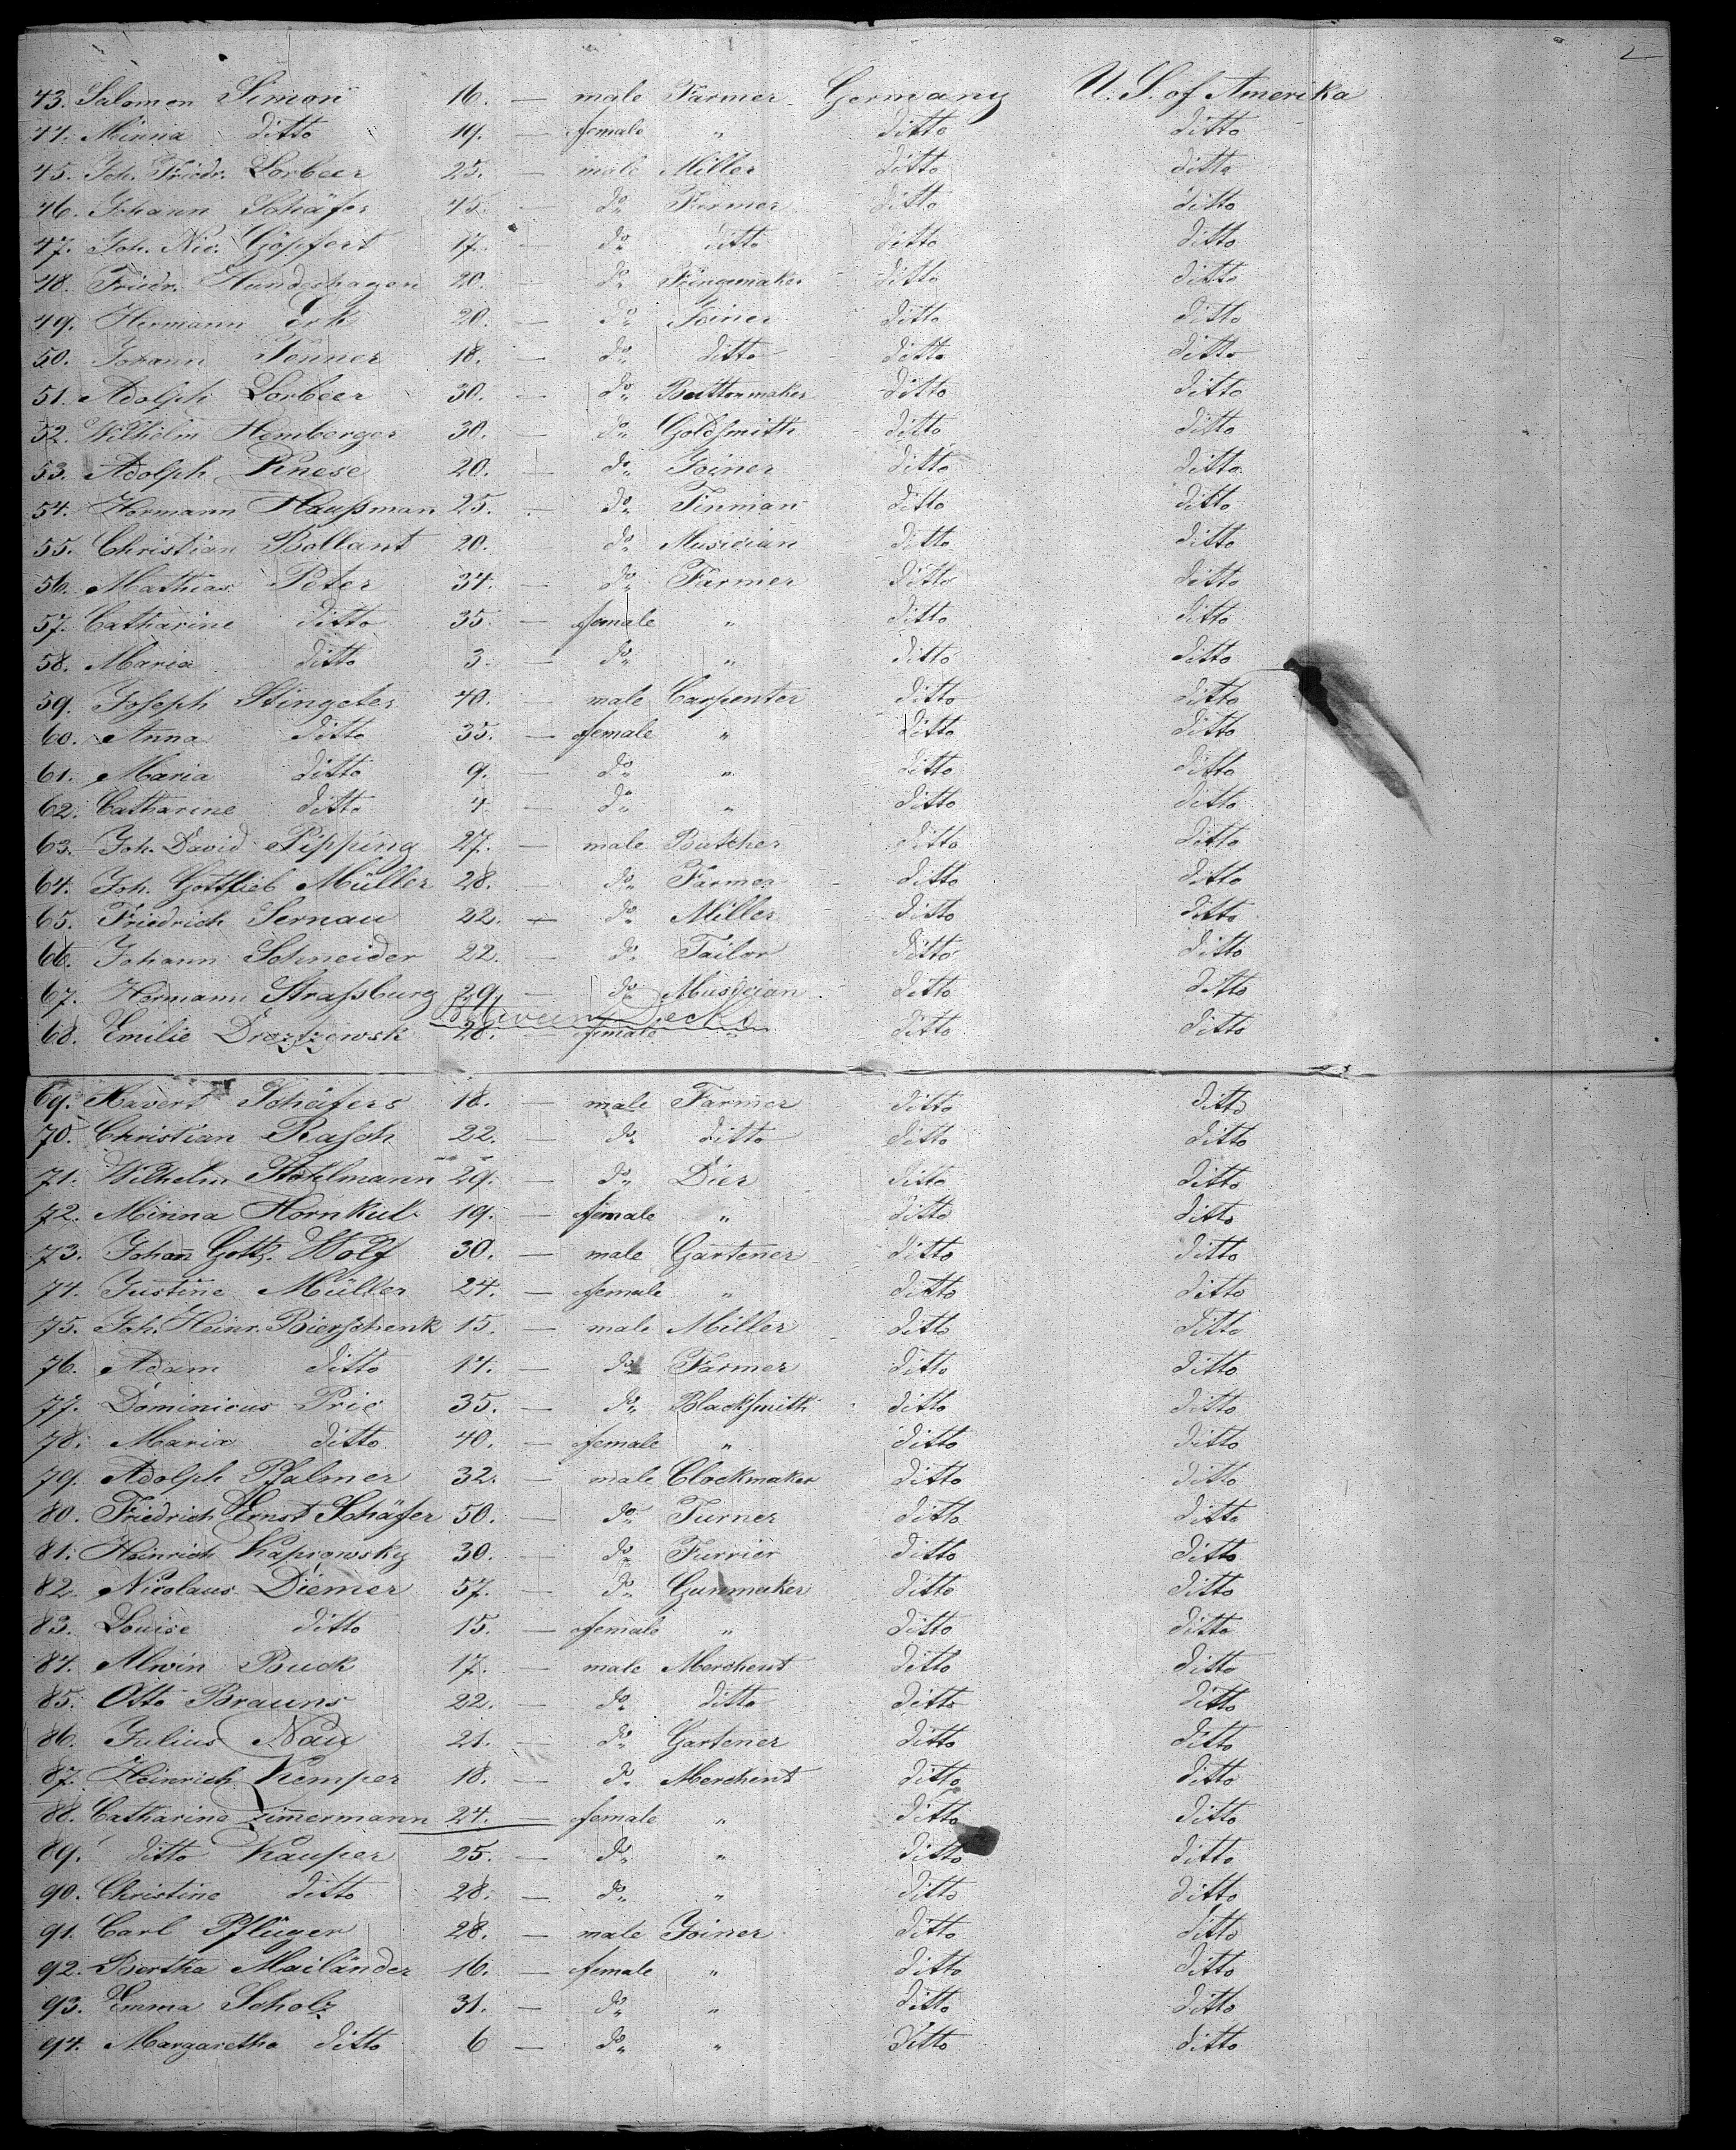 2
43. Salomon Simon 16. — male Farmer Germany U. S. of Amerika
44. Minna ditto 19. — female " ditto ditto
45. Joh. Friedr. Lorbeer 25. — male Miller ditto ditto
46. Johann Schäfer 45. — do Farmer ditto ditto
47. Joh. Nic. Göpfert 17. — do ditto ditto ditto
48. Friedr. Hundeshagen 20. — do Fringemaker ditto ditto
49. Hermann Erk 20. — do Joiner ditto ditto
50. Johann Fenner 18. — do ditto ditto ditto
51. Adolph Lorbeer 30. — do Buttonmaker ditto ditto
52. Wilhelm Hemberger 30. — do Goldsmith ditto ditto
53. Adolph Kinese 20. — do Joiner ditto ditto
54. Hermann Haußman 25. — do Tinman ditto ditto
55. Christian Bollant 20. do Musician ditto ditto
56. Mathias Peter 34. — do Farmer ditto ditto
57. Catharine ditto 35. — female " ditto ditto
58. Maria ditto 3. — do " ditto ditto
59. Joseph Stingeter 40. — male Carpenter ditto ditto
60. Anna ditto 35. — female " ditto ditto
61. Maria ditto 9. — do " ditto ditto
62. Catharine ditto 4 — do " ditto ditto
63. Joh. David Pipping 27. — male Butcher ditto ditto
64. Joh. Gottlieb Müller 28. — do Farmer ditto ditto
65. Friedrich Sernau 22. — do Miller ditto ditto
66. Johann Schneider 22. — do Tailor ditto ditto
67. Hermann Straßburg 29. — do Musician ditto ditto
Between Decks
68. Emilie 28. — female " ditto ditto
69. Schäfers 18. — male Farmer ditto ditto
70. Christian Rasch 22. — do ditto ditto ditto
71. Wilhelm Stohlmann 29. — do Dier ditto ditto
72. Minna Hornkul 19. — female " ditto ditto
73. Johan Gottf. Wolf 30. — male Gartener ditto ditto
74. Justine Müller 24. — female " ditto ditto
75. Joh. Heinr. Bierschenk 15. — male Miller ditto ditto
76. Adam ditto 14. — do Farmer ditto ditto
77. Dominicus Prie 35. — do Blacksmith ditto ditto
78. Maria ditto 40. — female " ditto ditto
79. Adolph Pfalmer 32. — male Clockmaker ditto ditto
80. Friedrich Ernst Schäfer 50. — do Turner ditto ditto
81. Heinrich Kaprowsky 30. — do Furrier ditto ditto
82. Nicolaus Diemer 57. — do Gunmaker ditto ditto
83. Louise ditto 15. — female " ditto ditto
84. Alwin Buck 17. — male Merchent ditto ditto
85. Otto Brauns 22. — do ditto ditto ditto
86. Julius Nau 21. — do Gartener ditto ditto
87. Heinrich Kemper 18. — do Merchent ditto ditto
88. Catharine Zimmermann 24. — female " ditto ditto
89. ditto Kauper 25. — do " ditto ditto
90. Christine ditto 28. — do " ditto ditto
91. Carl Pflüger 28. — male Joiner ditto ditto
92. Bertha Mailänder 16. — female " ditto ditto
93. Emma Scholz 31. — do " ditto ditto
94. Margaretha ditto 6 — do " ditto ditto